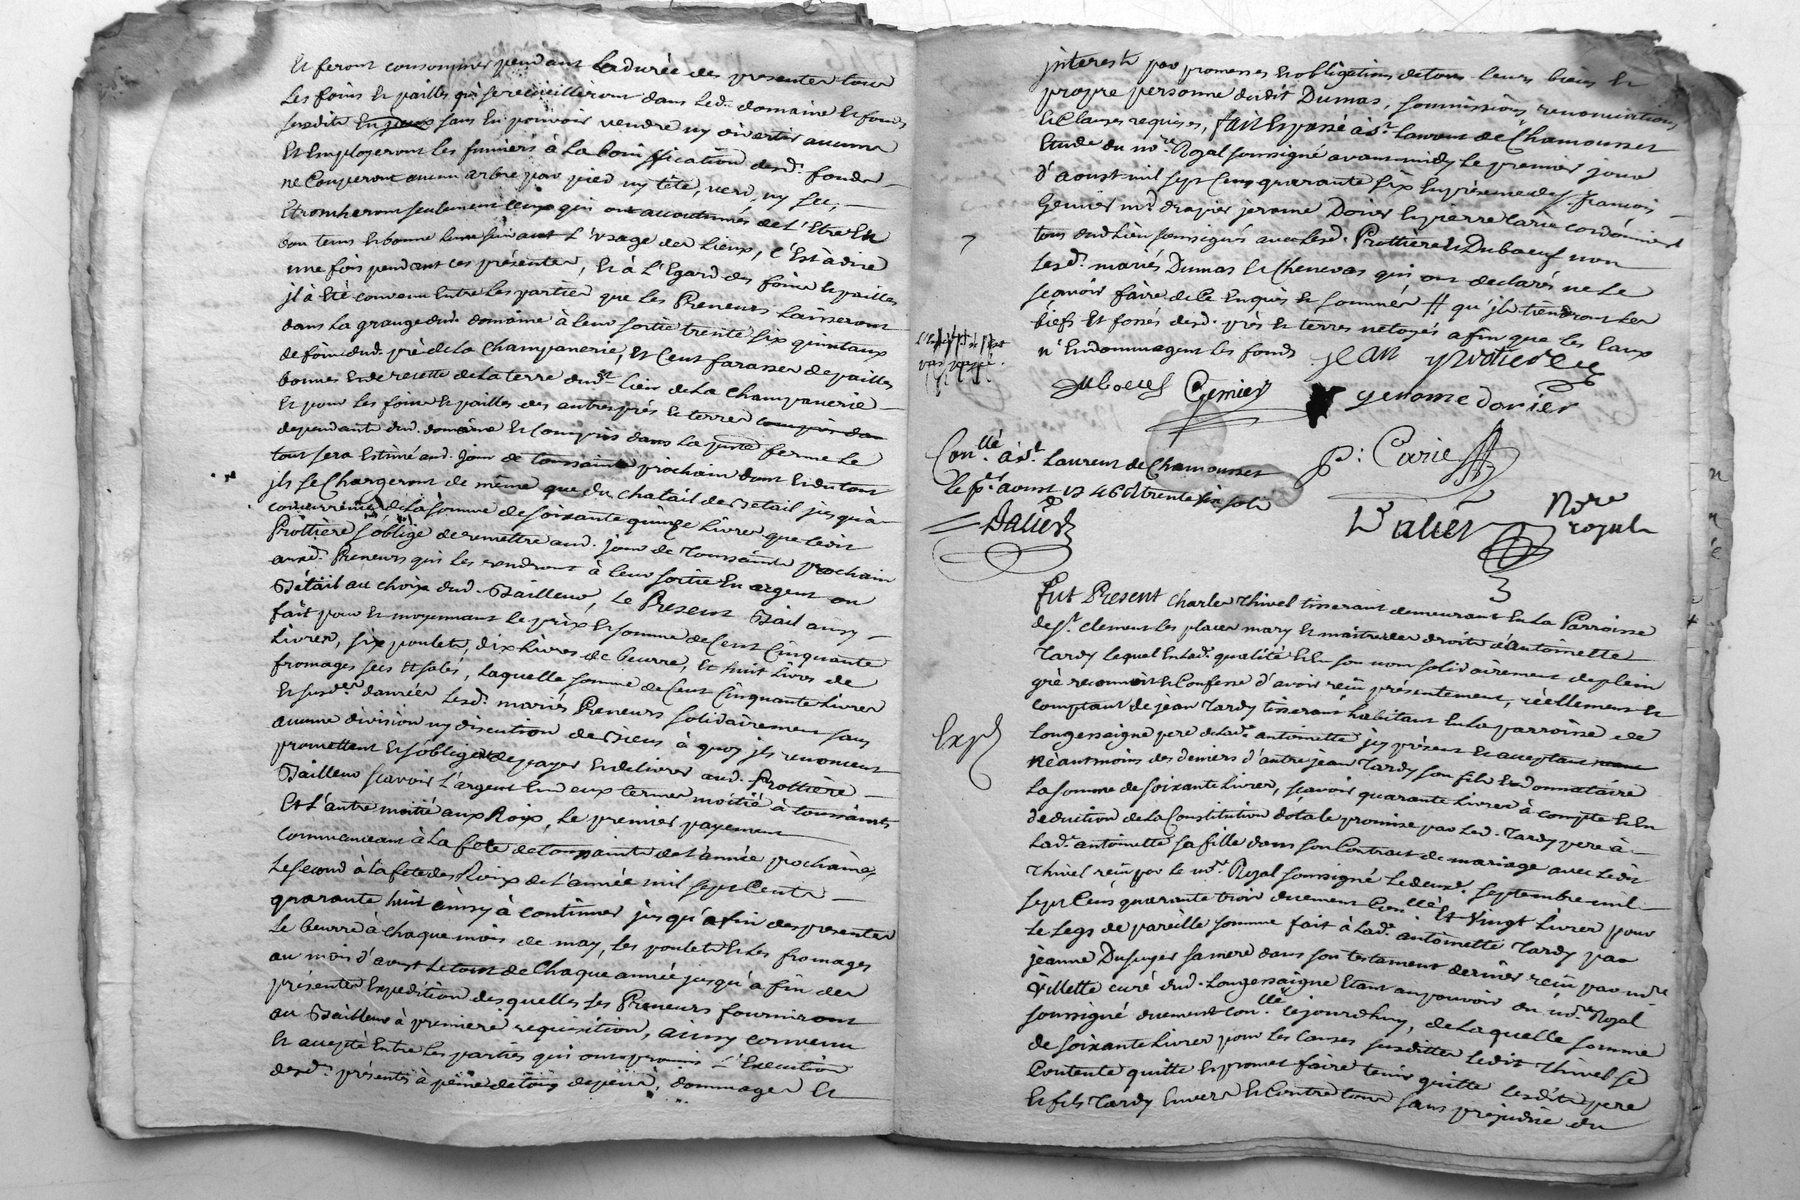 Et feront consommer pendant la durée des presentes tous
Les foins Et pailles qui se recueilleront dans Led. domaine et fonds
susdits sans En pouvoir vendre ny divertir aucuns
Et Employeront les fumiers à La bonification desd. fonds
ne Couperont aucun arbre par pied ny tête, verd, ny sec,
Et romheront seulement ceux qui ont accoutumés de L'Etre En
bon tems Et bonne suivant L'Usage des Lieux, c'Est à dire
une fois pendant ces présentes, Et à L'Egard des foins Et pailles
jl à Eté convenu Entre Les parties que les Preneurs Laisseront
dans La grange dud. domaine à leur sortie trente six quintaux
de foin dud. pré de La Champanerie, Et Cent farasses de pailles
bonnes Et de recette de La terre dud. lieu de La Champanerie
Et pour les foins Et pailles des autres prés Et terres
dependants dud. domaine Et Compris dans La ferme Le
tout sera Estimé aud. jour de toussaints prochain dont Et du tout
jls se Chargeront de même que du chatail de Betail jusqu'à
concurrence de La somme de soixante quinze Livres que Ledit
Prottiere s'oblige de remettre aud. jour de Toussaints prochain
auxd. Preneurs qui les rendront à leur sortie En argent ou
Bétail au choix dud. Bailleur, Le Present Bail ainsy
fait pour Et moyennant le prix Et somme de Cent Cinquante
Livres, six poulets, dix Livres de beurre, Et huit Livres de
fromages secs Et salés, Laquelle somme de Cent Cinquante Livres
Et susd. danrées Lesd. mariés Preneurs solidairement sans
aucune division ny discution de Biens à quoy jls renoncent
promettent Et s'obligent de payer Et delivrer aud. Prottière
Bailleur scavoir L'argent En deux termes moitié à toussaints
Et L'autre moitié aux Roix, Le premier payement
commenceant à La fete de toussaints de L'année prochaine,
Le second à La fete des Roix de L'année mil sept Cents
quarante huit ainsy à continuer jusqu'à fin des presentes
Le beurre à chaque mois de may, les poulets Et Les fromages
au mois d'aoust Le tout de Chaque année jusqu'à fin des
présentes Expedition desquelles Les Preneurs fourniront
au Bailleur à premiere requisition, ainsy convenu
Et accepté Entre Les parties qui ont promis L'Execution
desd. présentes à peine de tous depens, dommages Et
jnterests par promesses Et obligations de tous leurs biens Et
propre personne dudit Dumas, soumissions, renonciations
Et Clauses requises, fait Et passé à St. Laurent de Chamousset
Etude du no.re Royal soussigné avant midy Le premier jour
d'aoust mil sept Cens quarante six En présence de s. françois
Genier m.d drapier jerome Dorier Et pierre Carie cordonnier
tous dud. Lieu soussignés avec Lesd. Prottiere Et Duboeuf non
Lesd. mariés Dumas Et Chenevas qui ont declarés ne Le
scavoir faire de Ce Enquis Et sommés # qu'jls tiendront Les
biefs Et fossés desd. prés Et terres netoyés afin que les Eaux
n'Endommagent Les fonds jean protiere
duboeuf Genier yerome dorier
Con.llé à St. Laurent de Chamousset
le p.er aoust 1746 R trente six sols
Dalier
P: Carie
Dalier No.re royal
Fut Present Charles Thivel tisserant demeurant En La Parroisse
de St. Clement les places mary Et maitre des droits d'antoinette
Tardy lequel En lad. qualité Et En son nom solidairement de plein
gré reconnoit Et Confesse d'avoir reçu présentement, réellement Et
comptant de jean Tardy tisserant habitant En La parroisse de
Expd
Longessaigne pere de Lad. antoinette jcy présent Et acceptant
néantmoins des deniers d'autre jean Tardy son fils Et donnataire
La somme de soixante Livres, scavoir quarante Livres à compte Et En
déduction de La Constitution dotale promise par Led. Tardy pere à
Lad. antoinette sa fille dans son Contract de mariage avec Ledit
Thivel reçu par Le no.re Royal soussigné Le deux. septembre mil
sept Cens quarante trois duement Con.llé Et Vingt Livres pour
Le Legs de pareille somme fait à Lad. antoinette Tardy par
jeanne Dupuyer sa mere dans son testament dernier reçu par m.re
Villette curé dud. Longessaigne Etant au pouvoir du no.re Royal
soussigné duement Con.llé cejourdhuy, de Laquelle somme
de soixante Livres pour les Causes susdittes Ledit Thivel se
Contente quitte Et promet faire tenir quitte Lesdits pere
Et fils Tardy Envers Et Contre tous sans prejudice du